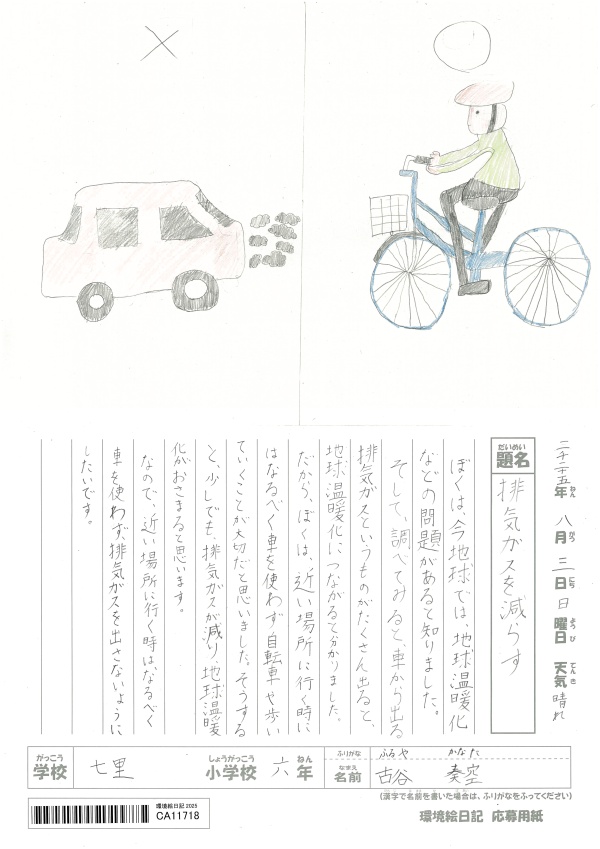 二千二十五年 八月 三日 日曜日 天気 晴れ
ねん がつ にち ようび てんき
だいめい
題名 排気ガスを減らす
ぼくは、今地球では、地球温暖化
などの問題があると知りました。
そして、調べてみると、車から出る
排気ガスというものがたくさん出ると、
地球温暖化につながると分かりました。
だから、ぼくは、近い場所に行く時に
はなるべく車を使わず自転車や歩い
ていくことが大切だと思いました。そうする
と、少しでも、排気ガスが減り、地球温暖
化がおさまると思います。
なので、近い場所に行く時は、なるべく
車を使わず、排気ガスを出さないように
したいです。
がっこう しょうがっこう ねん ふりがな ふるや かなた
学校 七里 小学校 六年 なまえ 名前 古谷 奏空
(漢字で名前を書いた場合は、ふりがなをふってください)
環境絵日記 2025
CA11718
環境絵日記 応募用紙